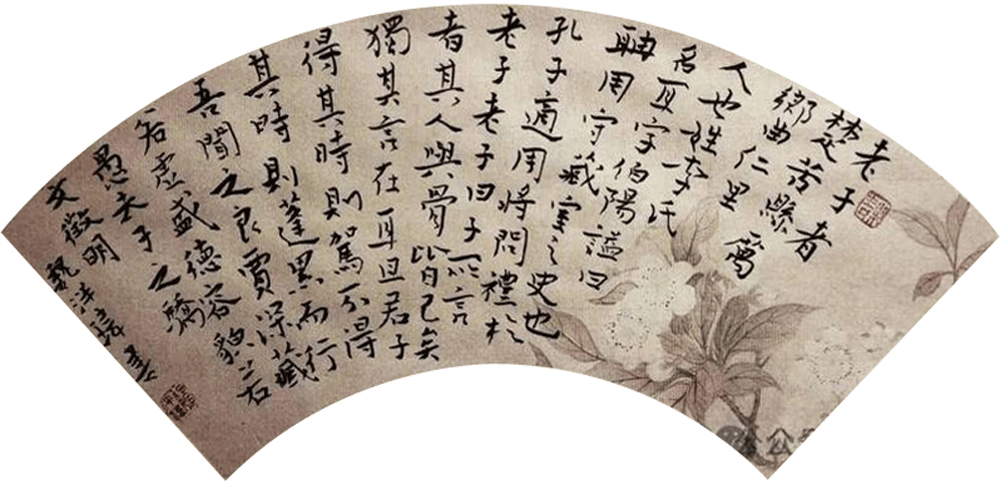 老子
楚苦縣者
鄉曲仁里厲
人也姓李氏
名耳字伯陽謚曰
聃用守藏室之史也
孔子適用將問禮於
老子老子曰子所言
者其人與骨皆已矣
獨其言在耳且君子
得其時則駕不得
其時則蓬累而行
吾聞之良賈深藏
若虛盛德容貌若
愚夫子之驕
文徵明
公